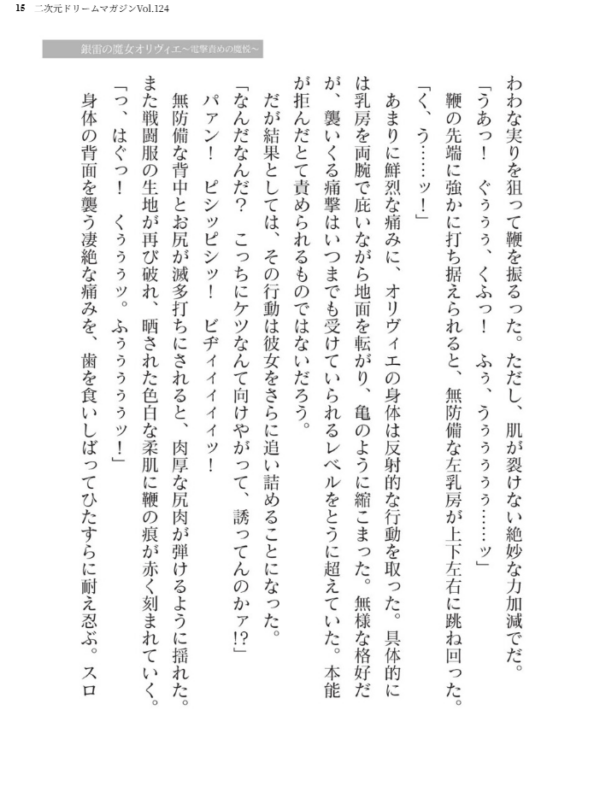 15 二次元ドリームマガジンVol.124
銀雷の魔女オリヴィエ～電撃責めの魔悦～
わわな実りを狙って鞭を振るった。ただし、肌が裂けない絶妙な力加減でだ。
「うあっ！　ぐぅぅぅ、くふっ！　ふぅ、うぅぅぅぅぅ……ッ」
鞭の先端に強かに打ち据えられると、無防備な左乳房が上下左右に跳ね回った。
「く、う……ッ！」
あまりに鮮烈な痛みに、オリヴィエの身体は反射的な行動を取った。具体的に
は乳房を両腕で庇いながら地面を転がり、亀のように縮こまった。無様な格好だ
が、襲いくる痛撃はいつまでも受けていられるレベルをとうに超えていた。本能
が拒んだとて責められるものではないだろう。
だが結果としては、その行動は彼女をさらに追い詰めることになった。
「なんだなんだ？　こっちにケツなんて向けやがって、誘ってんのかァ!?」
パァン！　ピシッピシッ！　ビヂィイイイイッ！
無防備な背中とお尻が滅多打ちにされると、肉厚な尻肉が弾けるように揺れた。
また戦闘服の生地が再び破れ、晒された色白な柔肌に鞭の痕が赤く刻まれていく。
「っ、はぐっ！　くぅぅぅッ。ふぅぅぅぅぅッ！」
身体の背面を襲う凄絶な痛みを、歯を食いしばってひたすらに耐え忍ぶ。スロ